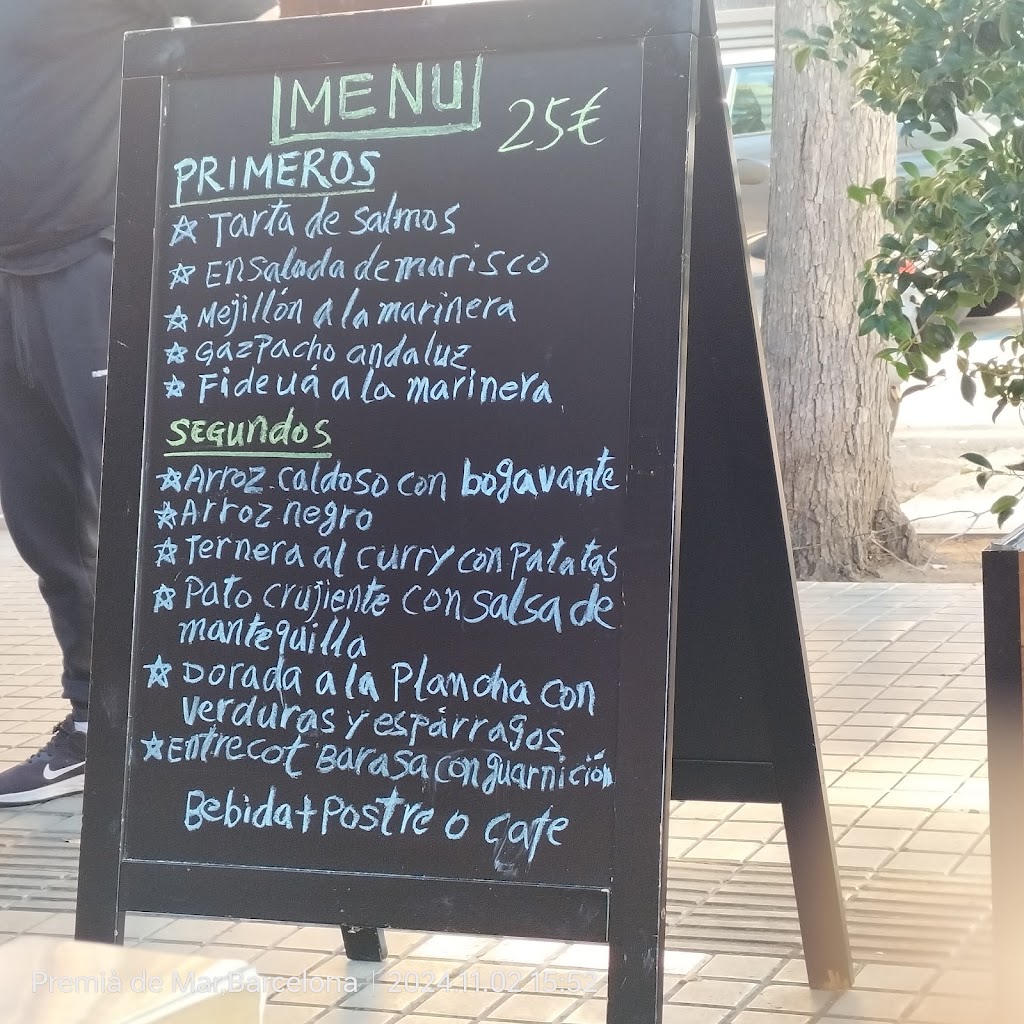 MENU
25€
PRIMEROS
☆ Tarta de salmos
☆ Ensalada de marisco
☆ Mejillón a la marinera
☆ Gazpacho andaluz
☆ Fideuá a la marinera
SEGUNDOS
☆ Arroz caldoso con bogavante
☆ Arroz negro
☆ Ternera al curry con Patatas
☆ Pato crujiente con salsa de
mantequilla
☆ Dorada a la Plancha con
verduras y espárragos
☆ Entrecot Barasa con guarnición
Bebida + Postre o cafe
Premià de Mar, Barcelona | 2024.11.02 15:52